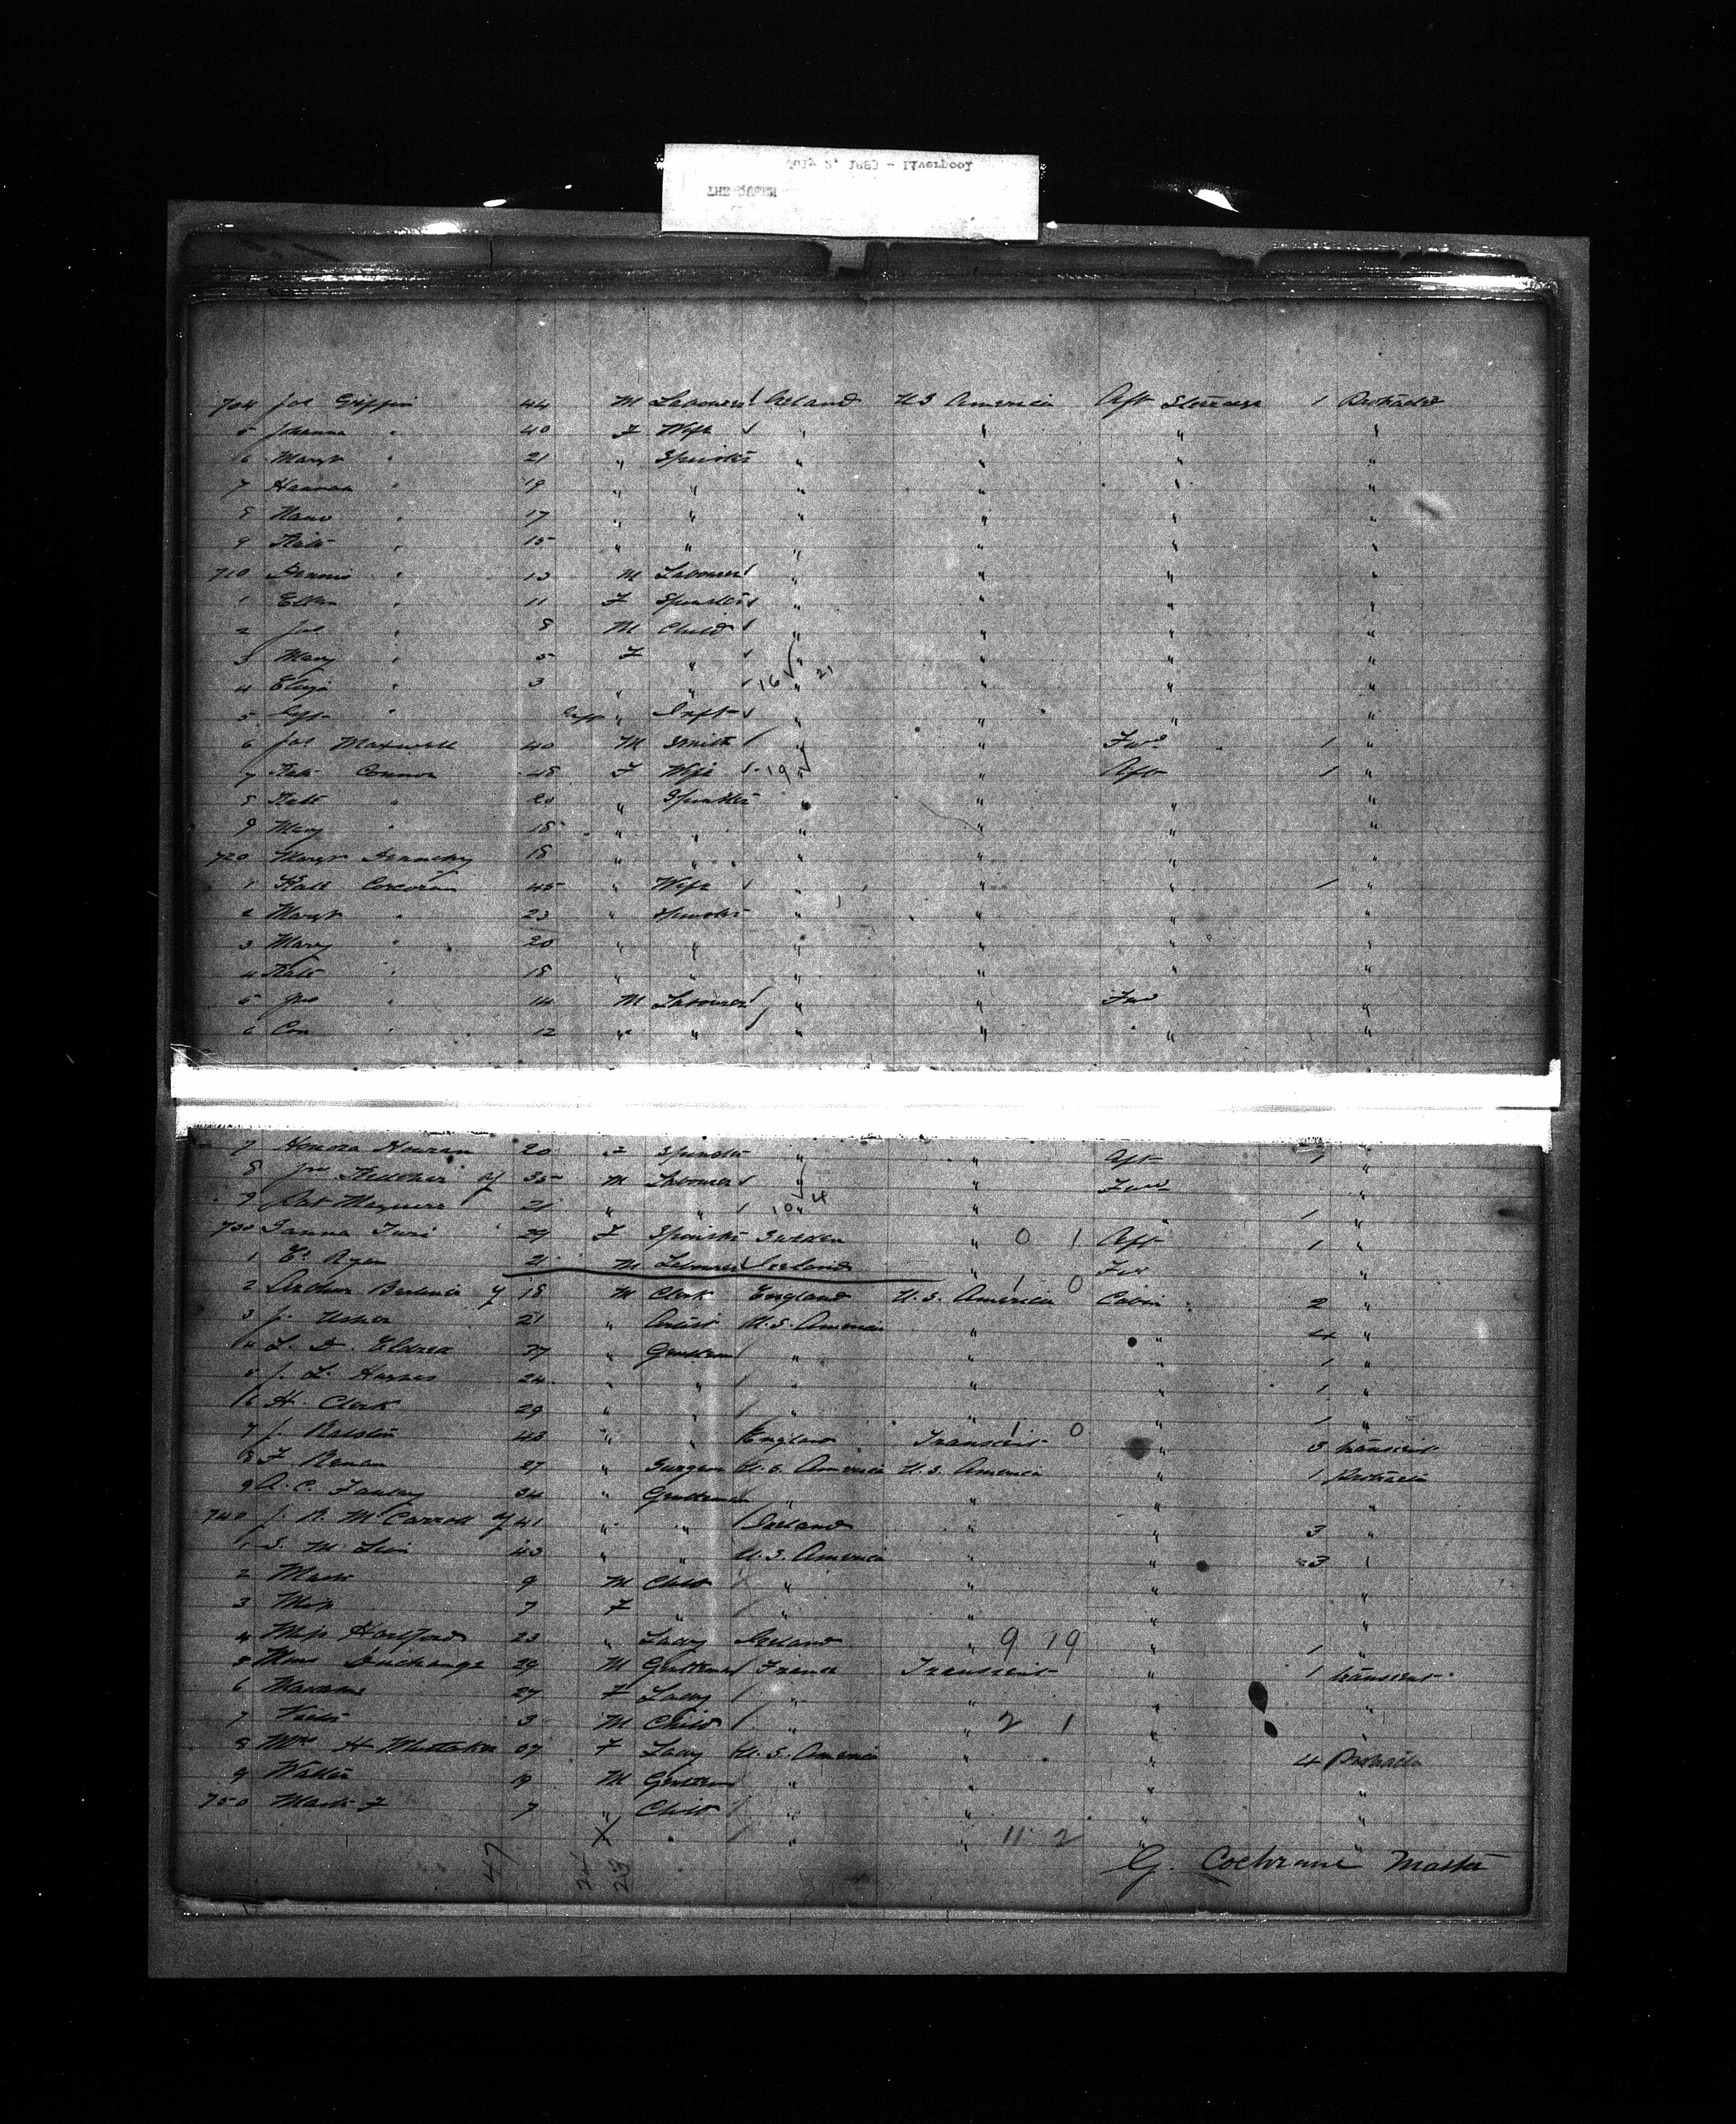 THE QUEEN
July 2, 1883 - Liverpool
704 Jas Griffin 44 M Labourer Ireland U S America Aft Steerage 1 Protracted
5 Johanna " 40 F Wife " " " "
6 Margt " 21 " Spinster " " " "
7 Hannah " 19 " " " " " "
8 " 17 " " " " " "
9 Kate " 15 " " " " " "
710 Dennis " 13 M Labourer " " " "
1 Ellen " 11 F Spinster " " " "
2 Jas " 8 M Child " " " "
3 Mary " 5 F " " " " "
4 Eliza " 3 " " 16 " 21 " " "
5 Inft " Inft " Inft " " " "
6 Jas Maxwell 40 M Smith " " Fwd 1 "
7 Kate Connor 48 F Wife 19 " " Aft 1 "
8 Kate " 20 " Spinster " " " "
9 Mary " 18 " " " " " "
720 Margt 18 " " " " " "
1 Kate Corcoran 45 " Wife " " " 1 "
2 Margt " 23 " Spinster " " " "
3 Mary " 20 " " " " " "
4 Kate " 18 " " " " " "
5 Jno " 14 M Labourer " " Fwd "
6 Con " 12 " " " " " "
7 Honora 20 F Spinster " " Aft 1 "
8 Jno 35 M Labourer " " Fwd "
9 Pat Maguire 21 " " 10 " 4 " " 1 "
730 29 F Spinster Sweden " 0 1 Aft 1 "
1 Ed Ryan 21 M Labourer Ireland " Fw "
2 Arthur 18 M Clerk England U.S. America 1 0 Cabin 2 "
3 J. Usher 21 " Artist U.S. America " " 4 "
4 L. D. Eldred 37 " Gentleman " " " 1 "
5 J. L. 24 " " " " " 1 "
6 H. Clark 29 " " " " " 1 "
7 J. Ralston 43 " " England Transient 1 0 " 3 transient
8 F. 27 " Surgeon U.S. America U.S. America " 1 Protracted
9 A. C. 34 " Gentleman " " " "
740 J. R. McCarroll 41 " " Ireland " " 3 "
1 S. M. Levi 43 " " U.S. America " " 3 "
2 Mark 9 M Child " " " "
3 Miss 7 F " " " " "
4 Miss Hartford 23 " Lady Ireland " 9 19 " 1 "
5 Mons Duchange 29 M Gentleman France Transient " 1 transient
6 Madame 27 F Lady " " " "
7 3 M Child " " 2 1 " "
8 Mrs H 37 F Lady U.S. America " " 4 Protracted
9 Walter 19 M Gentleman " " " "
750 Mark F 7 " Child " " " "
X " " 11 2 " "
47 24 23
G. Cochrane Master